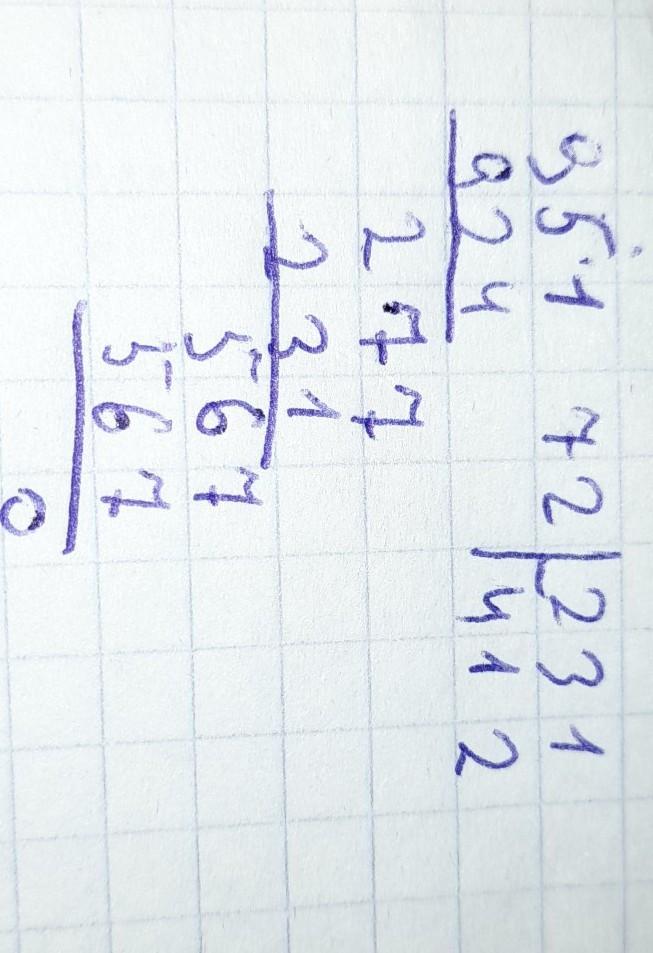 951 72 231
924 412
277
231
567
567
0